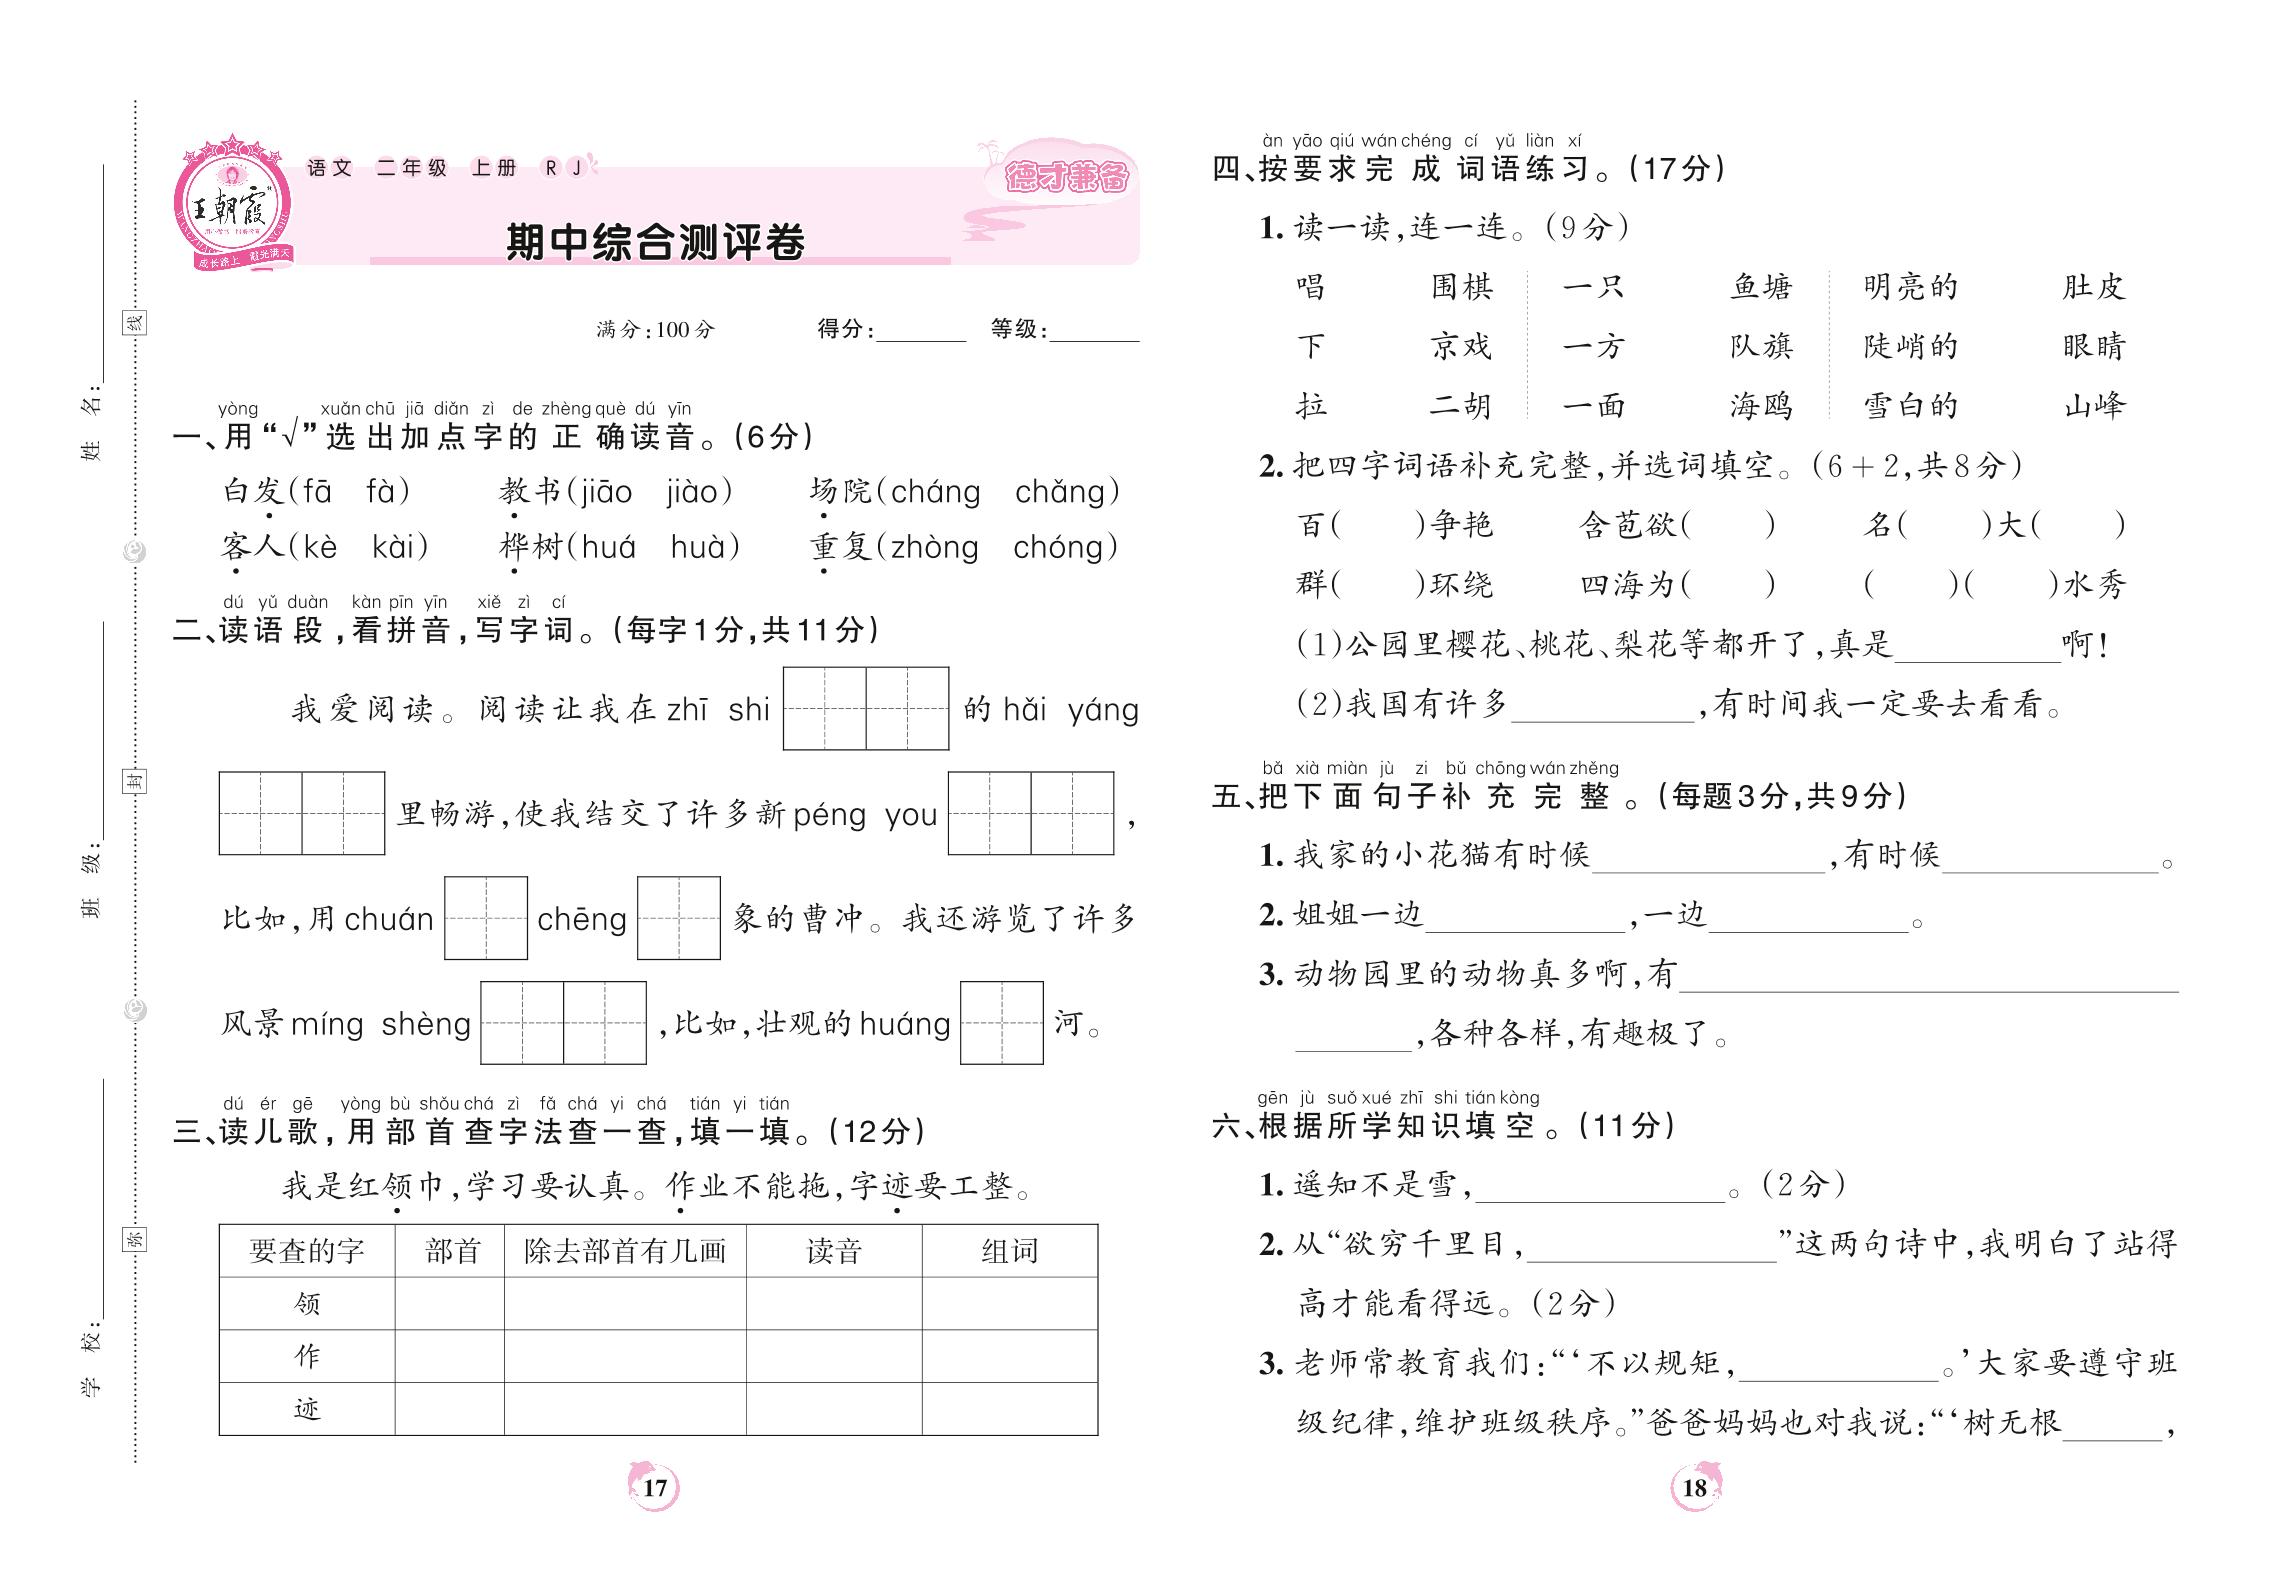 语文 二年级 上册 RJ
德才兼备
王朝霞
成长路上 阳光满天
期中综合测评卷
满分:100分 得分: 等级:
姓 名:
班 级:
学 校:
线
封
弥
yòng xuǎn chū jiā diǎn zì de zhèng què dú yīn
一、用“√”选出加点字的正确读音。(6分)
白发(fā fà) 教书(jiāo jiào) 场院(cháng chǎng)
客人(kè kài) 桦树(huá huà) 重复(zhòng chóng)
dú yǔ duàn kàn pīn yīn xiě zì cí
二、读语段,看拼音,写字词。(每字1分,共11分)
我爱阅读。阅读让我在zhī shi 的hǎi yáng
里畅游,使我结交了许多新péng you ,
比如,用chuán chēng 象的曹冲。我还游览了许多
风景míng shèng ,比如,壮观的huáng 河。
dú ér gē yòng bù shǒu chá zì fǎ chá yi chá tián yi tián
三、读儿歌,用部首查字法查一查,填一填。(12分)
我是红领巾,学习要认真。作业不能拖,字迹要工整。
要查的字 部首 除去部首有几画 读音 组词
领
作
迹
17
àn yāo qiú wán chéng cí yǔ liàn xí
四、按要求完成词语练习。(17分)
1. 读一读,连一连。(9分)
唱 围棋 一只 鱼塘 明亮的 肚皮
下 京戏 一方 队旗 陡峭的 眼睛
拉 二胡 一面 海鸥 雪白的 山峰
2. 把四字词语补充完整,并选词填空。(6+2,共8分)
百( )争艳 含苞欲( ) 名( )大( )
群( )环绕 四海为( ) ( )( )水秀
(1)公园里樱花、桃花、梨花等都开了,真是 啊!
(2)我国有许多 ,有时间我一定要去看看。
bǎ xià miàn jù zi bǔ chōng wán zhěng
五、把下面句子补充完整。(每题3分,共9分)
1. 我家的小花猫有时候 ,有时候 。
2. 姐姐一边 ,一边 。
3. 动物园里的动物真多啊,有
,各种各样,有趣极了。
gēn jù suǒ xué zhī shi tián kòng
六、根据所学知识填空。(11分)
1. 遥知不是雪, 。(2分)
2. 从“欲穷千里目, ”这两句诗中,我明白了站得
高才能看得远。(2分)
3. 老师常教育我们:“‘不以规矩, 。’大家要遵守班
级纪律,维护班级秩序。”爸爸妈妈也对我说:“‘树无根 ,
18